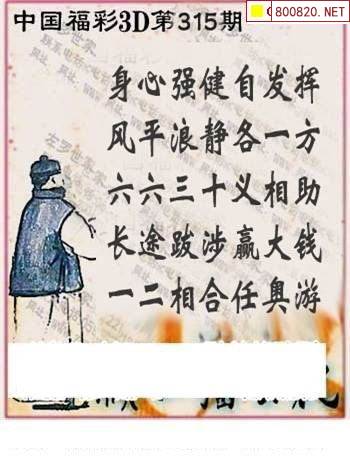 中国福彩3D第315期
800820.NET
身心强健自发挥
风平浪静各一方
六六三十义相助
长途跋涉赢大钱
一二相合任奥游